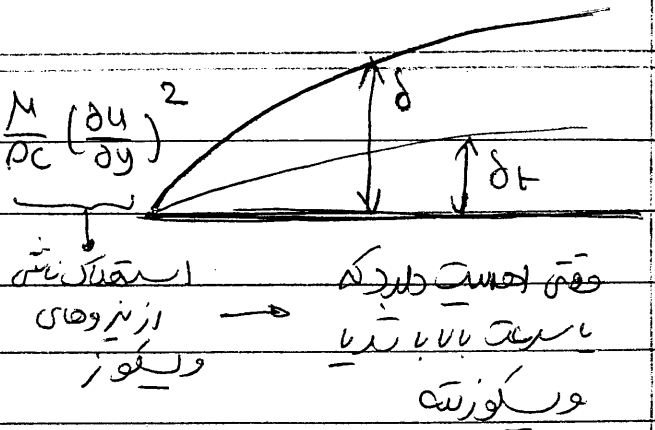 μ/ρc (∂u/∂y)²
δ
δt
استهلاک ناشی
از نیروهای
ویسکوز
→
وقتی اهمیت دارد که
یا سرعت بالا باشد یا
ویسکوزیته